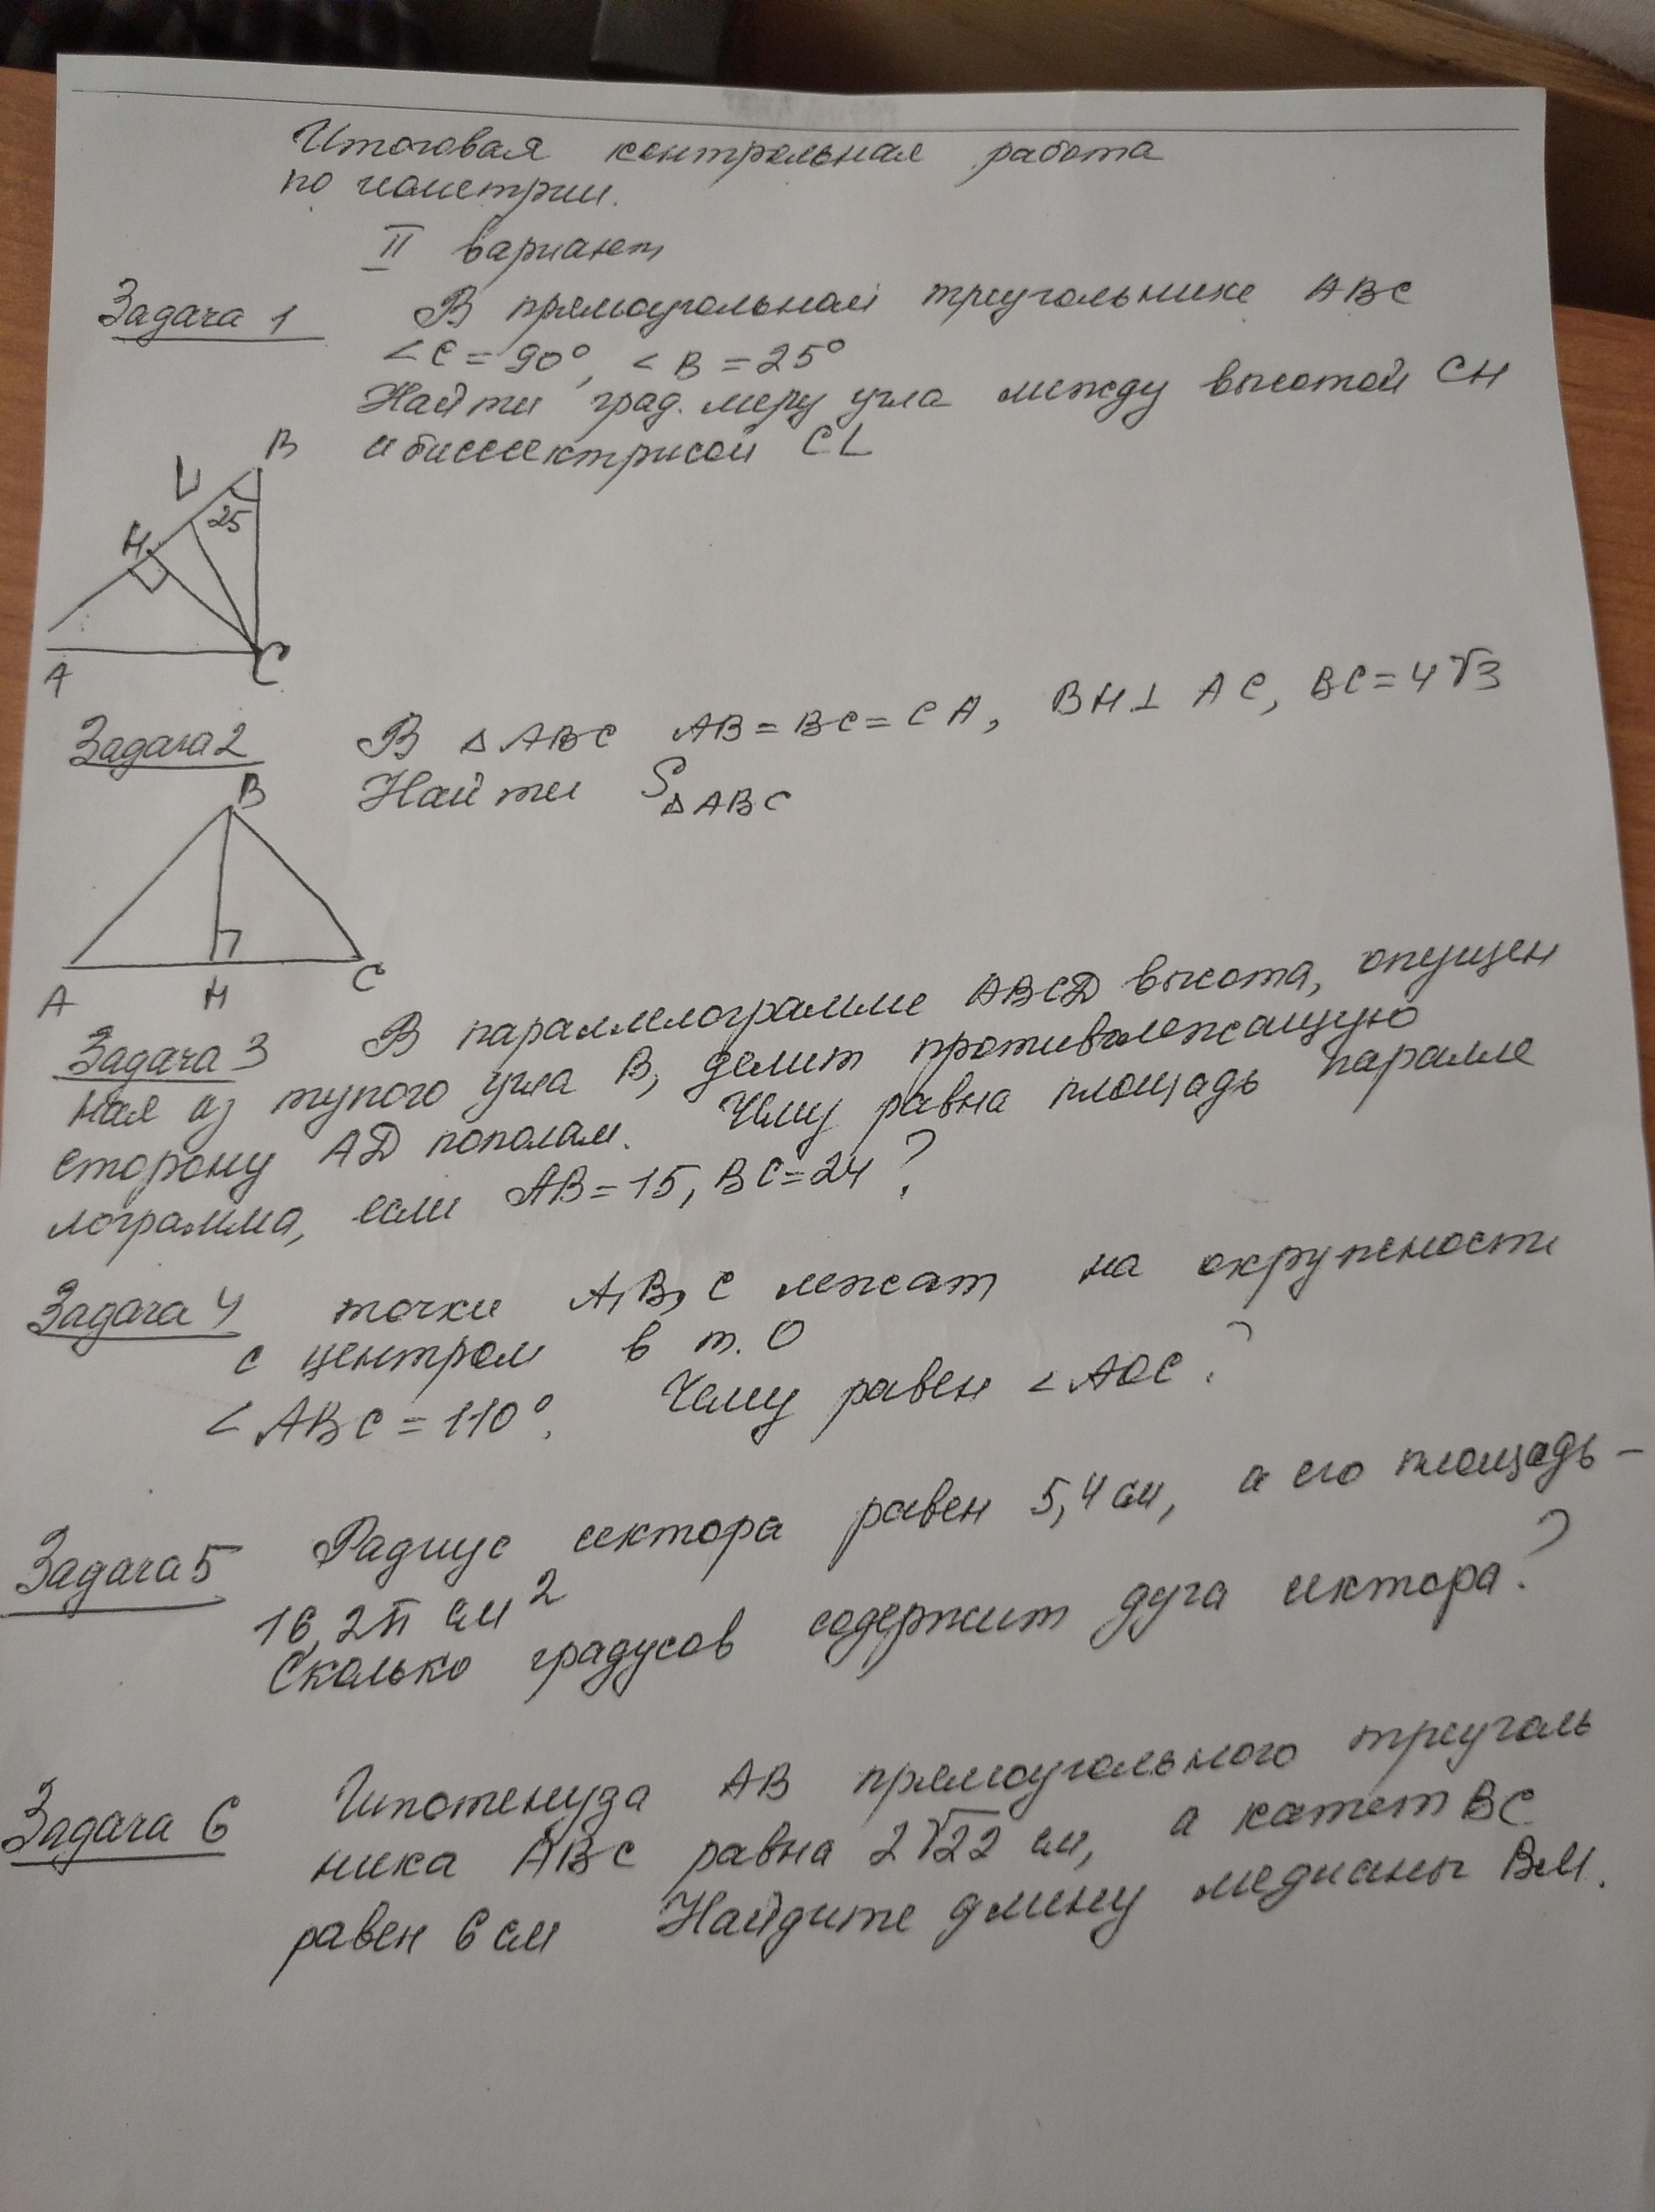 Итоговая контрольная работа
по геометрии.
II вариант
Задача 1 В прямоугольном треугольнике ABC
∠C = 90°, ∠B = 25°
Найти град. меру угла между высотой CH
и биссектрисой CL
B
L
25
H
A
C
Задача 2 В △ABC AB = BC = CA, BH ⊥ AC, BC = 4√3
Найти S△ABC
B
A
H
C
Задача 3 В параллелограмме ABCD высота, опущен
ная из тупого угла B, делит противолежащую
сторону AD пополам. Чему равна площадь паралле
лограмма, если AB = 15, BC = 24?
Задача 4 точки A, B, C лежат на окружности
с центром в т. O
∠ABC = 110°. Чему равен ∠AOC?
Задача 5 Радиус сектора равен 5,4 см, а его площадь –
16,2π см²
Сколько градусов содержит дуга сектора?
Задача 6 Гипотенуза AB прямоугольного треуголь
ника ABC равна 2√22 см, а катет BC
равен 6 см Найдите длину медианы BM.